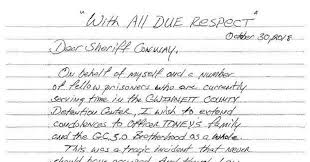 "With All DUE Respect"
October 30, 2018
Dear Sheriff Conway,
On behalf of myself and a number
of fellow prisoners who are currently
serving time in the GWINNETT COUNTY
Detention Center, I wish to extend
condolences to Officer TONEYS family
and the G.C.S.O Brotherhood as a whole.
This was a tragic incident that never
should have